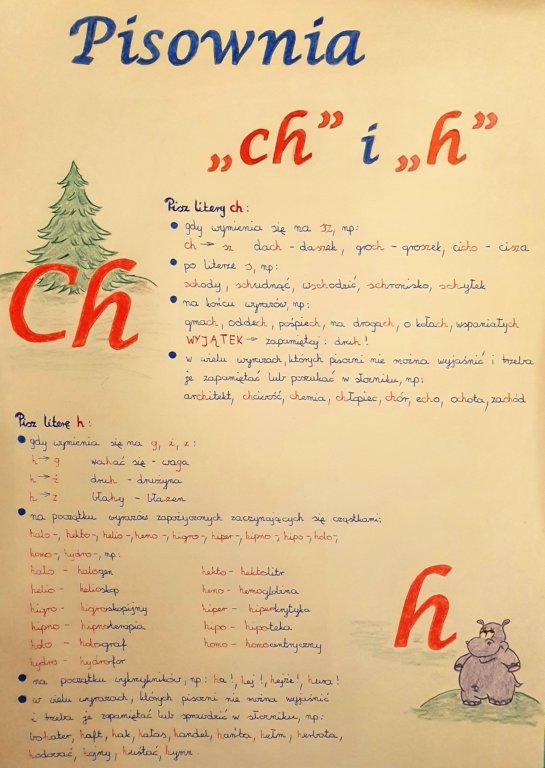 Pisownia
„ch” i „h”
Pisz litery ch:
gdy wymienia się na sz, np:
ch → sz dach - daszek, groch - groszek, cicho - cisza
po literze s, np:
schody, schudnąć, wschodzić, schronisko, schyłek
na końcu wyrazów, np:
gmach, oddech, pośpiech, na drogach, o kołach, wspaniałych
WYJĄTEK → zapamiętaj: druh!
w wielu wyrazach, których pisowni nie można wyjaśnić i trzeba
je zapamiętać lub poszukać w słowniku, np:
architekt, chciwość, chemia, chłopiec, chór, echo, ochota, zachód
Ch
Pisz literę h:
gdy wymienia się na g, ż, z:
h → g wahać się - waga
h → ż druh - drużyna
h → z błahy - błazen
na początku wyrazów zapożyczonych zaczynających się cząstkami:
halo-, hekto-, helio-, hemo-, higro-, hiper-, hipno-, hipo-, holo-,
homo-, hydro-, np:
halo - halogen hekto - hektolitr
helio - helioskop hemo - hemoglobina
higro - higroskopijny hiper - hiperkrytyka
hipno - hipnoterapia hipo - hipoteka
holo - holograf homo - homocentryczny
hydro - hydrofor
na początku wykrzykników, np: ha!, hej!, hejże!, hura!
w wielu wyrazach, których pisowni nie można wyjaśnić
i trzeba je zapamiętać lub sprawdzić w słowniku, np:
bohater, haft, hak, hałas, handel, hańba, hełm, herbata,
hodować, hojny, huśtać, hymn.
h